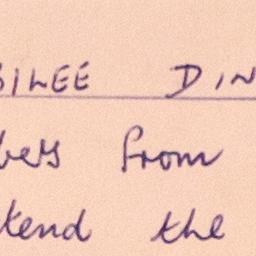 BILEE DIN
bers from
tend the